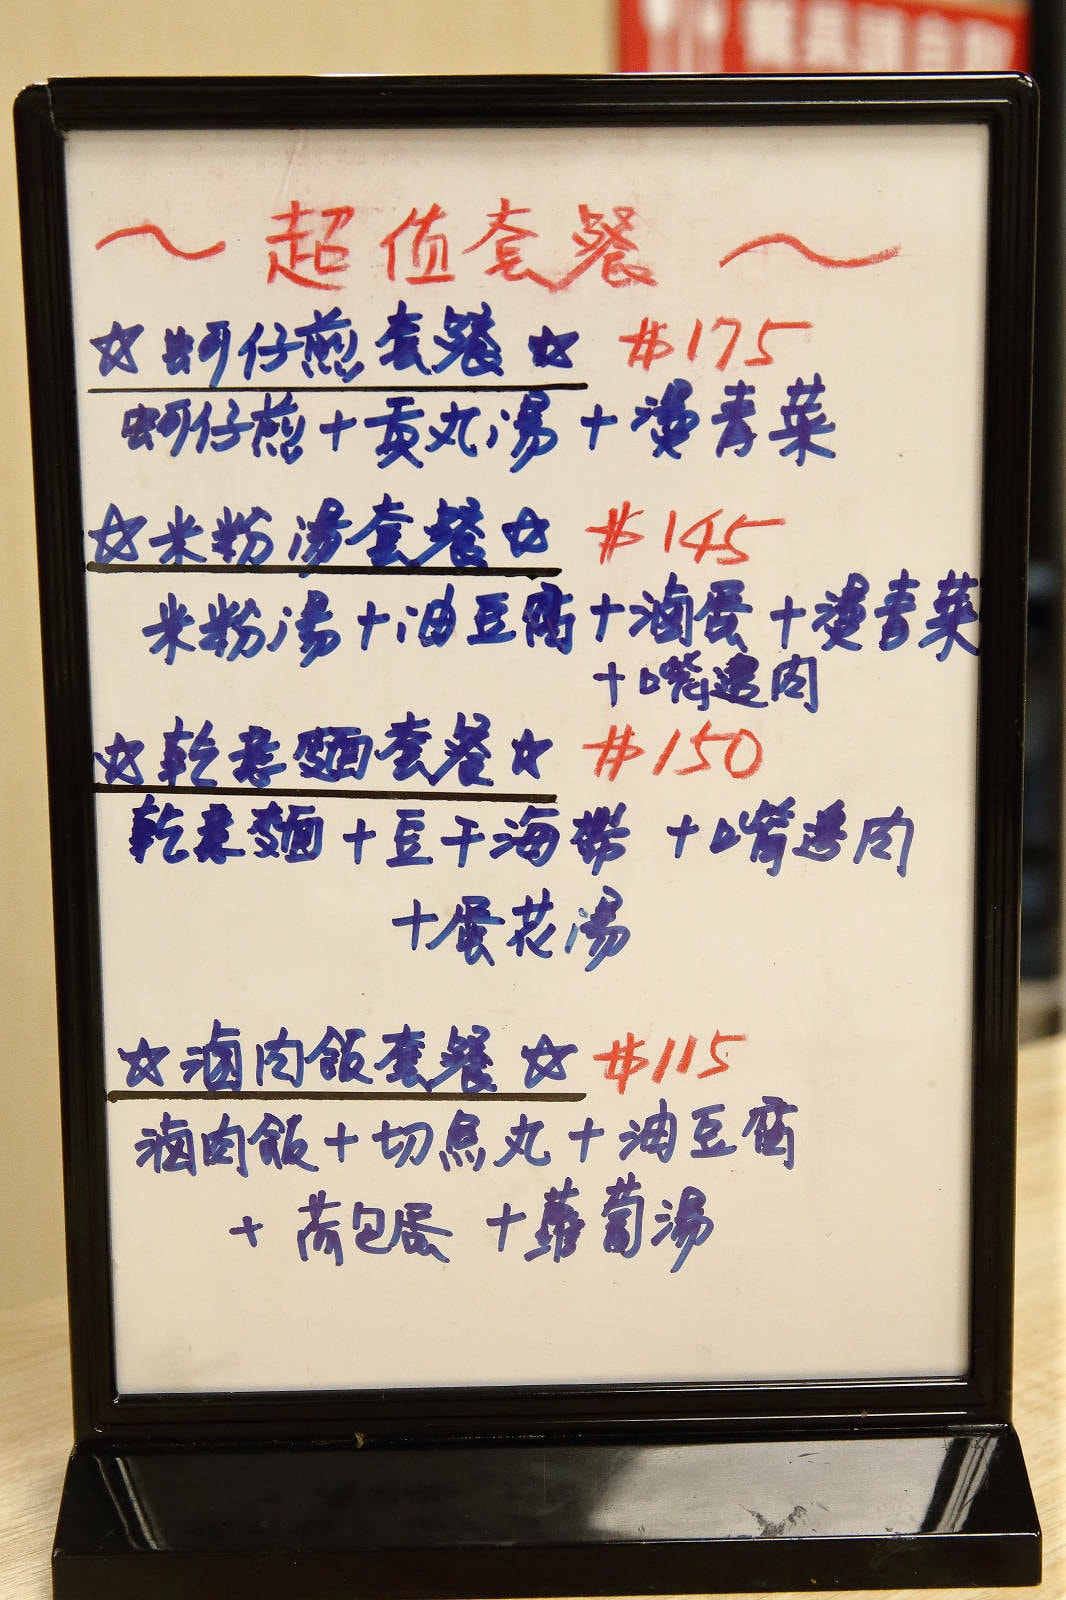 餐具請自取
～超值套餐～
☆蚵仔煎套餐☆ $175
蚵仔煎+貢丸湯+燙青菜
☆米粉湯套餐☆ $145
米粉湯+油豆腐+滷蛋+燙青菜
+嘴邊肉
☆乾意麵套餐☆ $150
乾意麵+豆干海帶+嘴邊肉
+蛋花湯
☆滷肉飯套餐☆ $115
滷肉飯+切魚丸+油豆腐
+荷包蛋+蘿蔔湯